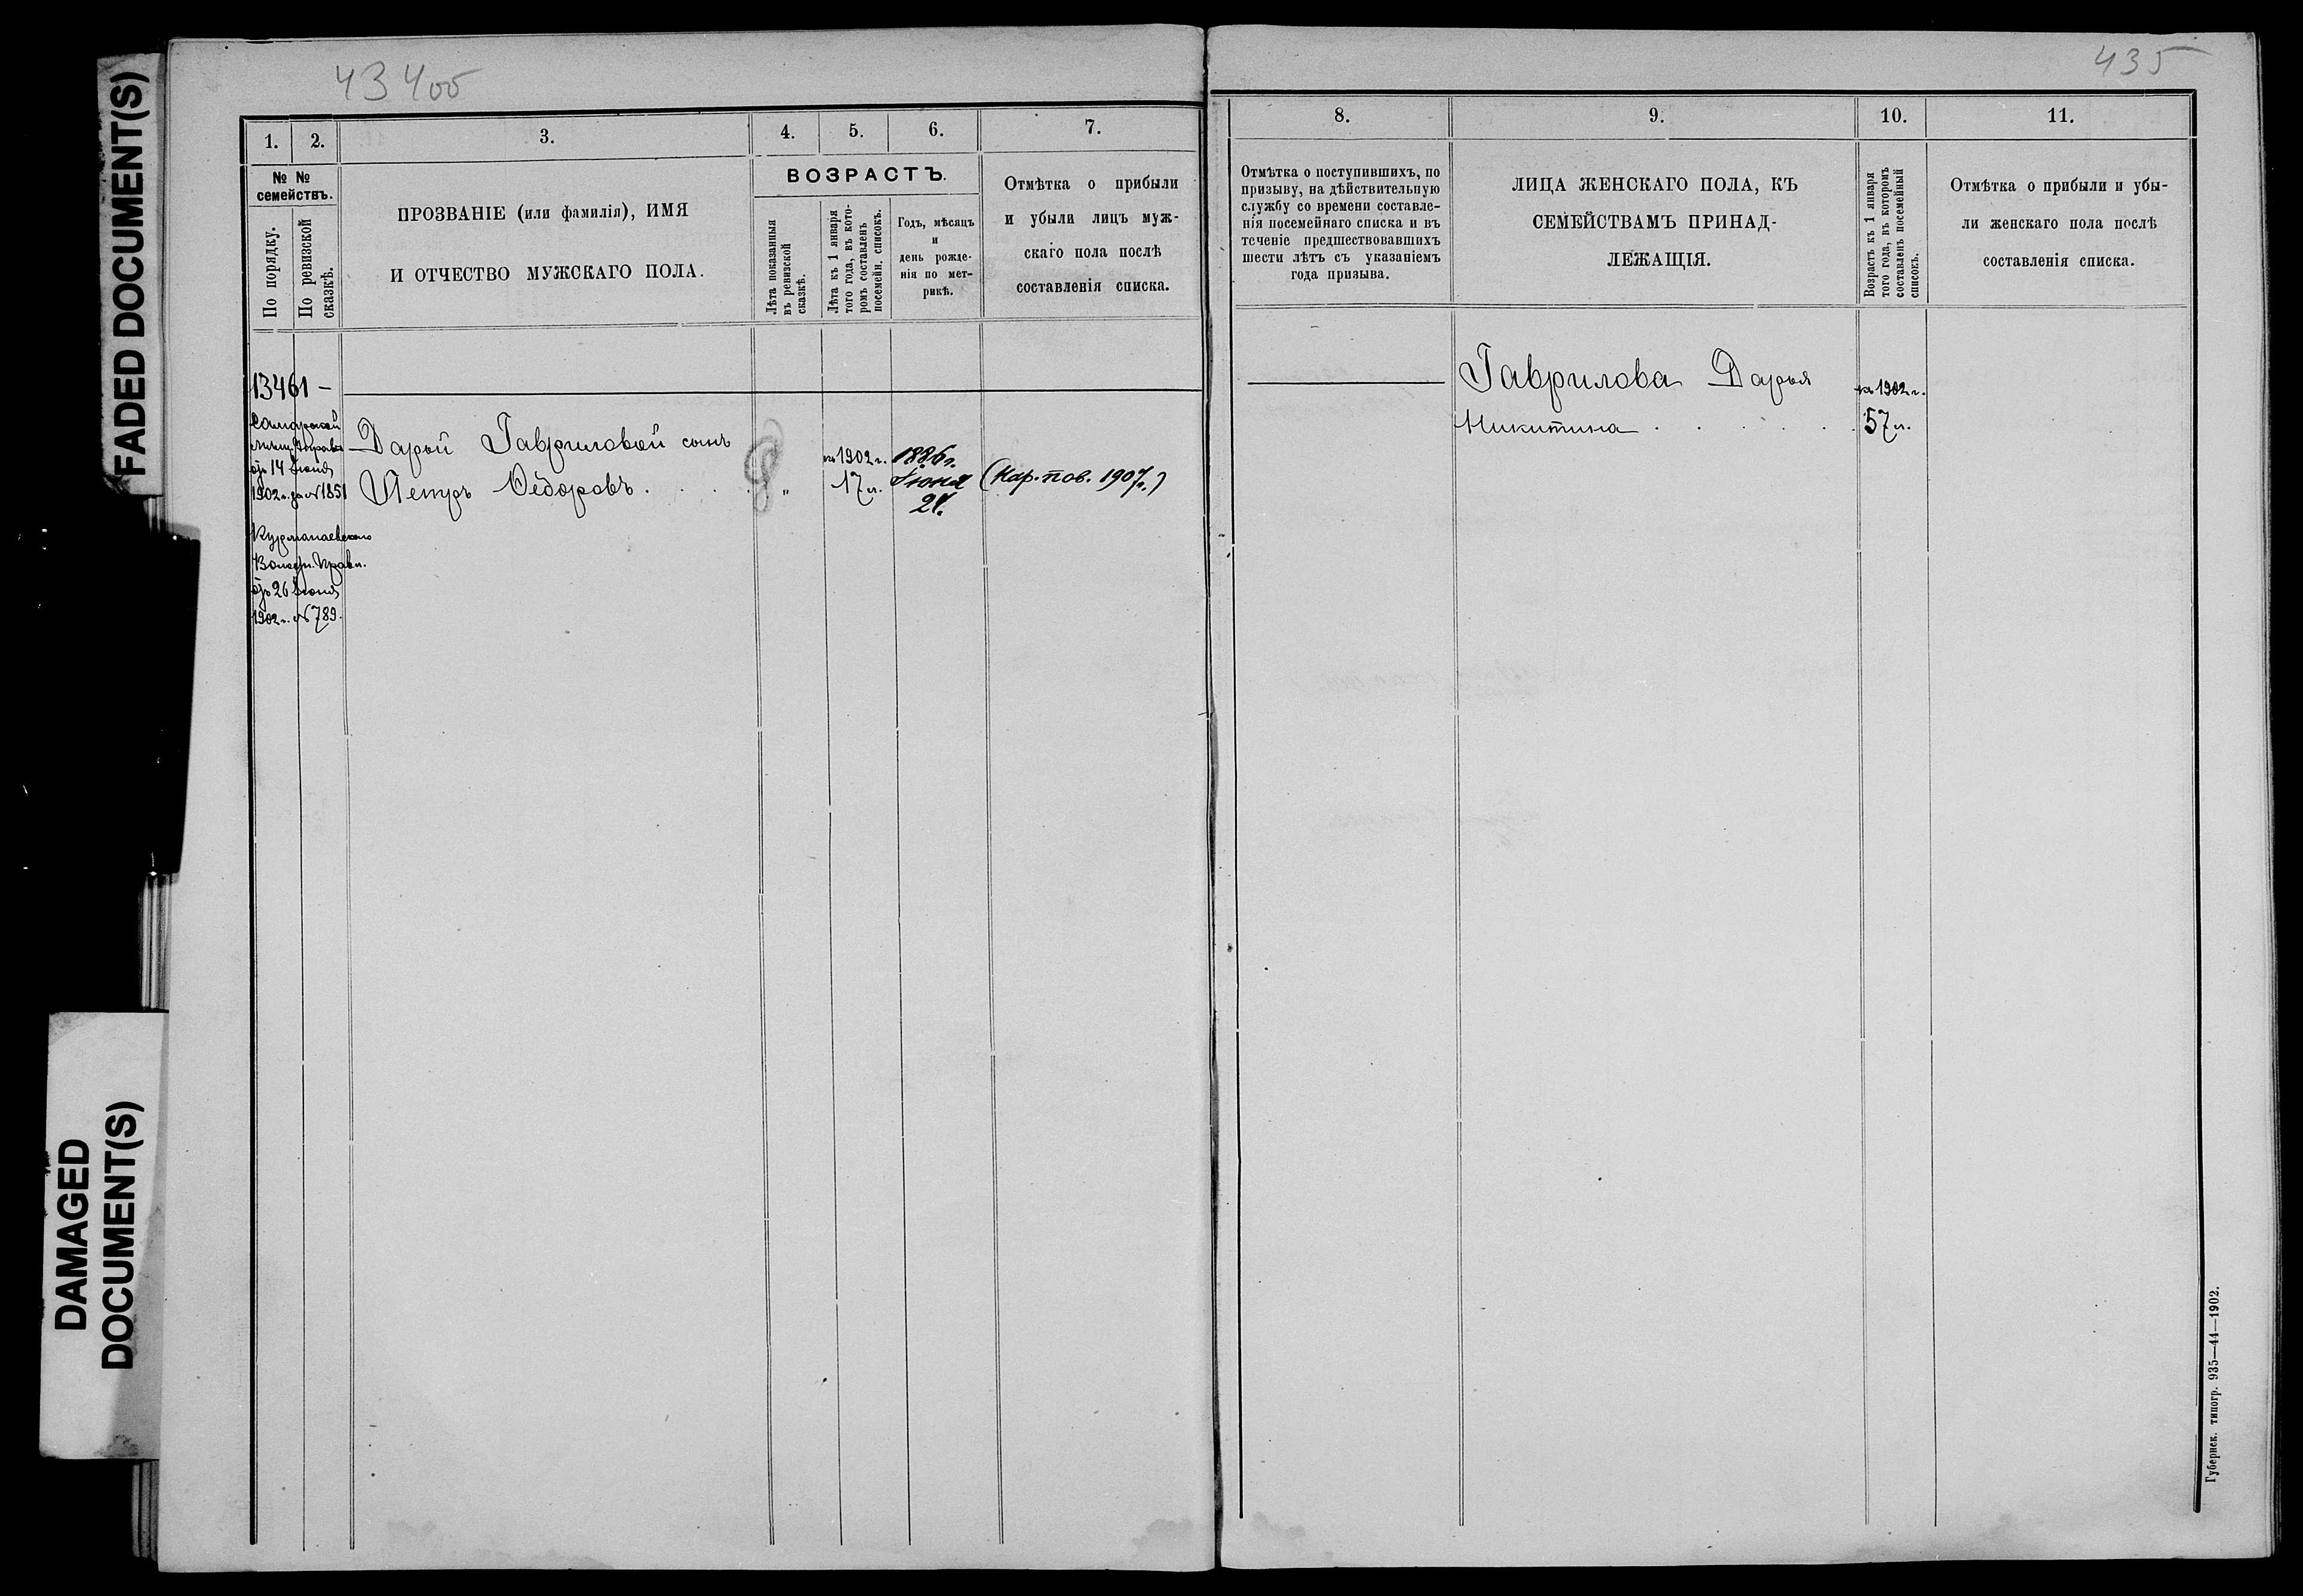 FADED DOCUMENT(S)
DAMAGED
DOCUMENT(S)
434об
1. 2. 3. 4. 5. 6. 7.
№ №
семействъ.
По порядку.
По ревизской
сказкѣ.
ПРОЗВАНІЕ (или фамилія), ИМЯ
И ОТЧЕСТВО МУЖСКАГО ПОЛА.
ВОЗРАСТЪ.
Лѣта показанныя
въ ревизской
сказкѣ.
Лѣта къ 1 января
того года, въ кото-
ромъ составленъ
посемейн. списокъ.
Годъ, мѣсяцъ
и
день рожде-
нія по мет-
рикѣ.
Отмѣтка о прибыли
и убыли лицъ муж-
скаго пола послѣ
составленія списка.
13461 –
Самарской
мѣщ. Управы
отъ 14 Іюня
1902 г. за №1851
Курманаевскаго
Волостн. Правл.
отъ 26 Іюня
1902 г. №789.
Дарьи Гавриловой сынъ
Петръ Ѳедоровъ
къ 1902 г.
"
17 л.
1886 г.
Іюня
21.
(Кар. пов. 1907 г.)
435
8. 9. 10. 11.
Отмѣтка о поступившихъ, по
призыву, на дѣйствительную
службу со времени составле-
нія посемейнаго списка и въ
теченіе предшествовавшихъ
шести лѣтъ съ указаніемъ
года призыва.
ЛИЦА ЖЕНСКАГО ПОЛА, КЪ
СЕМЕЙСТВАМЪ ПРИНАД-
ЛЕЖАЩІЯ.
Возрастъ къ 1 января
того года, въ которомъ
составленъ посемейный
списокъ.
Отмѣтка о прибыли и убы-
ли женскаго пола послѣ
составленія списка.
Гаврилова Дарья
къ 1902 г.
Никитина
57 л.
Губернск. типогр. 935—44—1902.